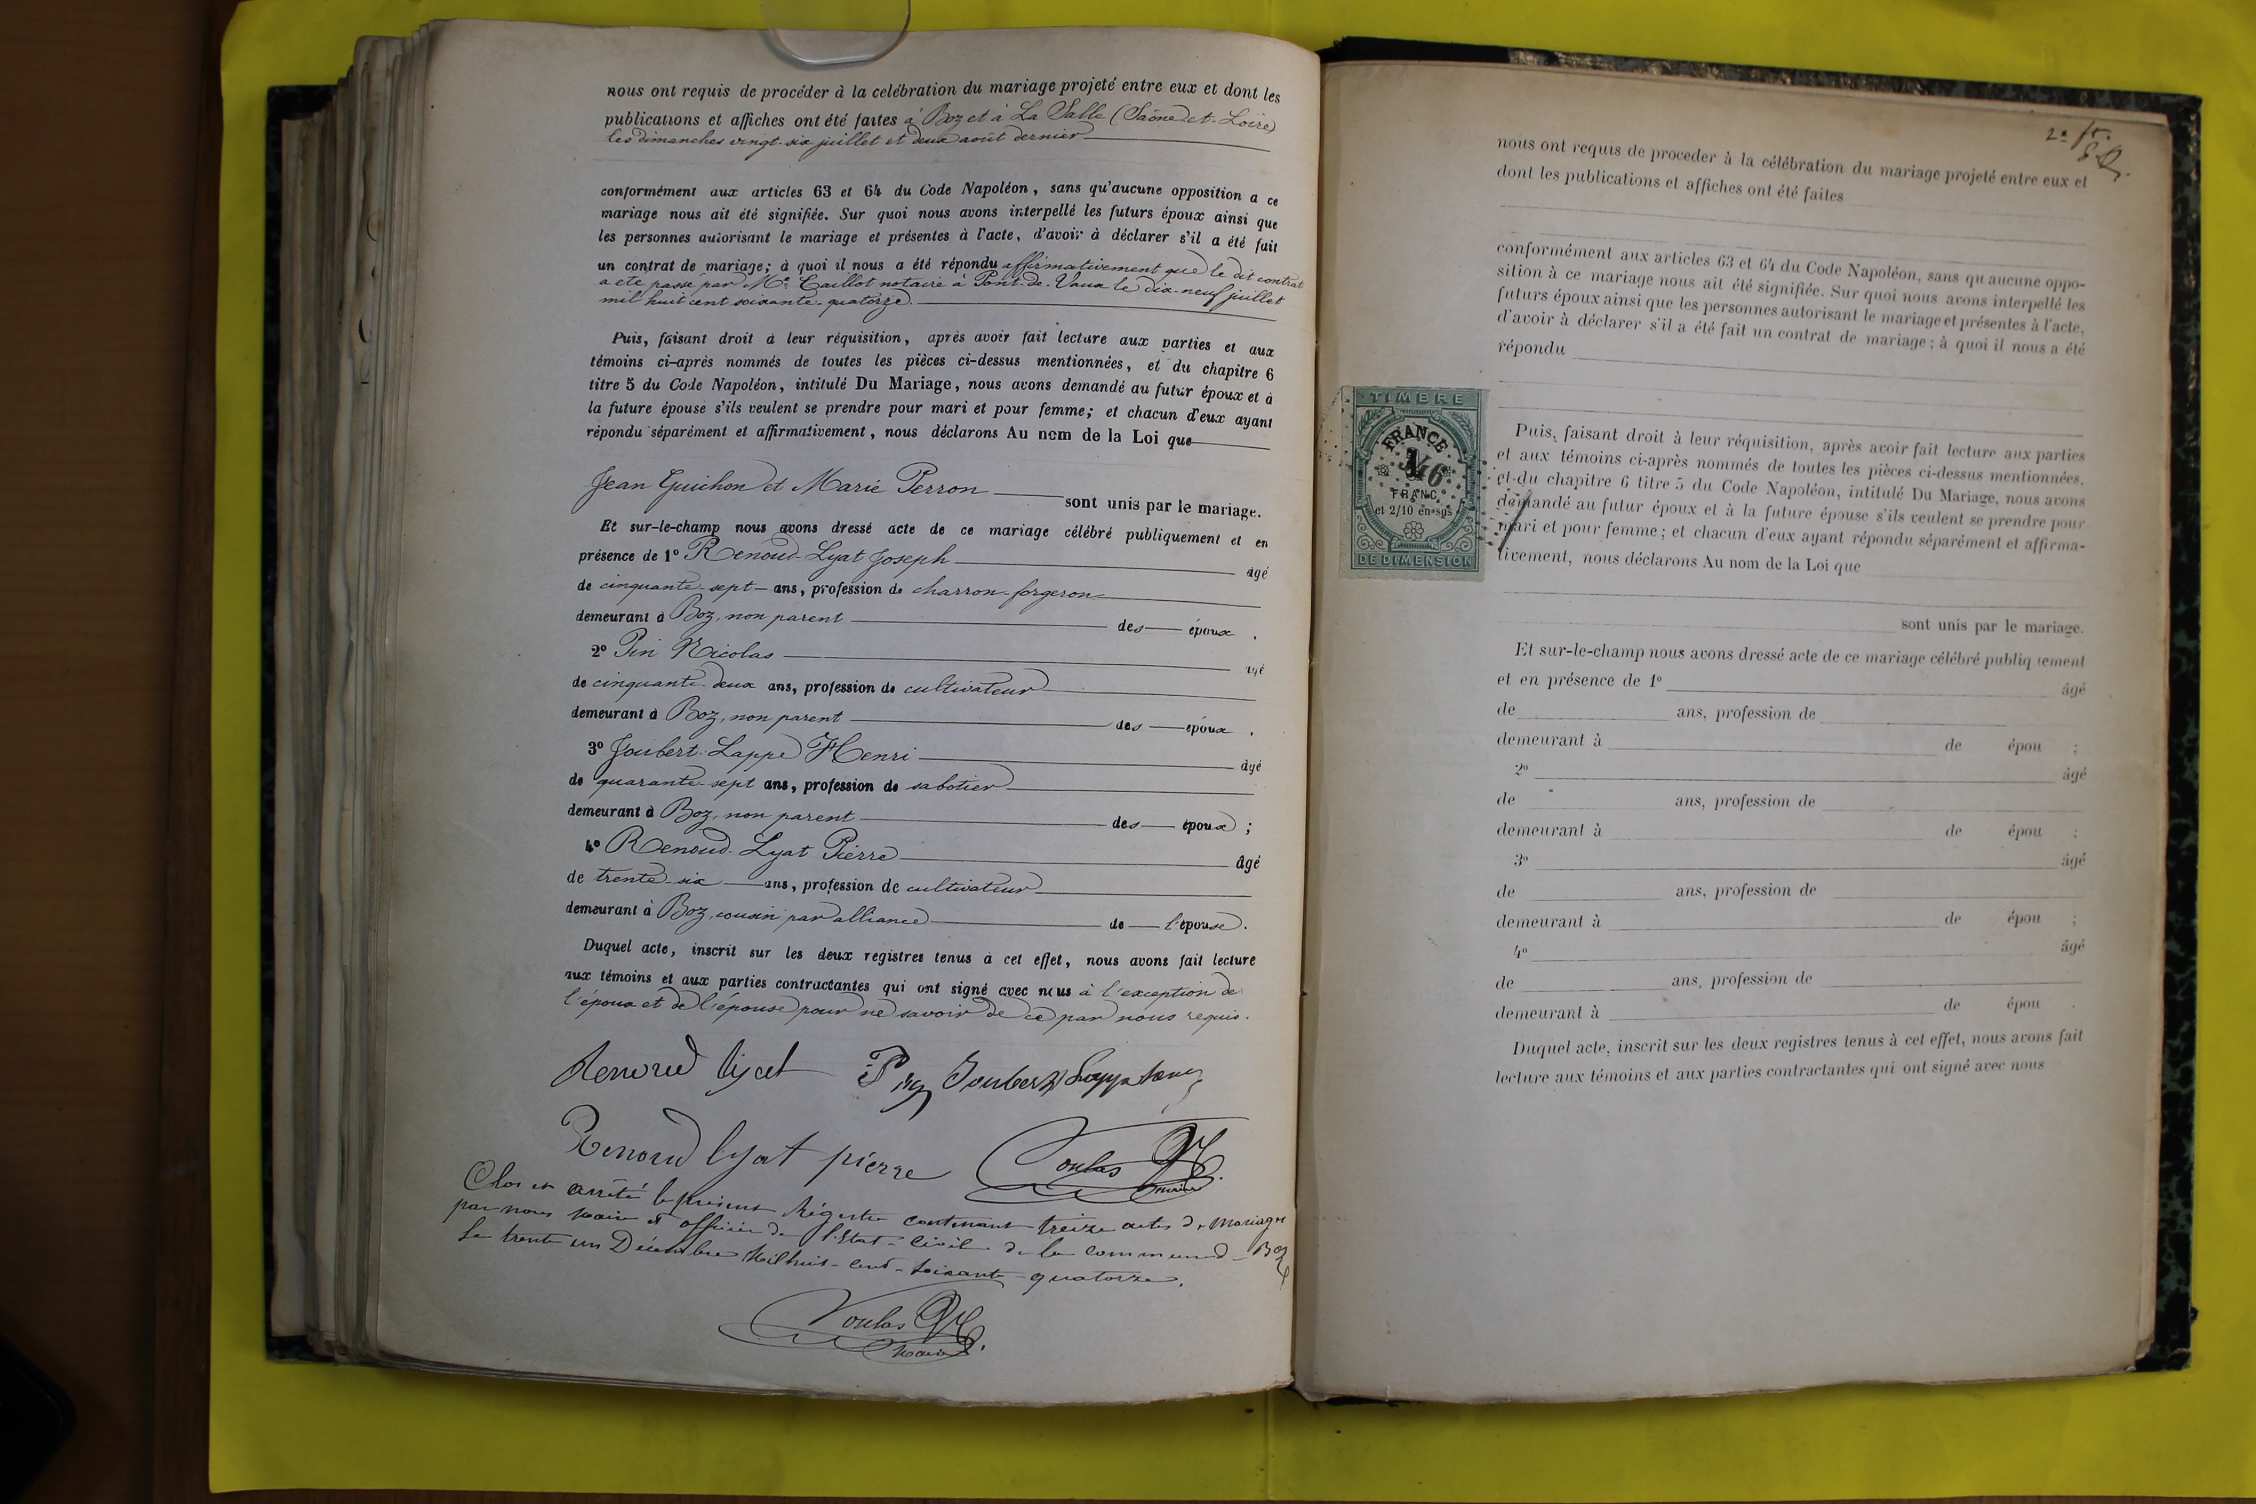 nous ont requis de procéder à la celébration du mariage projeté entre eux et dont les
publications et affiches ont été faites à Boz et à La Salle (Saône-et-Loire)
les dimanches vingt-six juillet et deux août dernier
conformément aux articles 63 et 64 du Code Napoléon, sans qu'aucune opposition a ce
mariage nous ait été signifiée. Sur quoi nous avons interpellé les futurs époux ainsi que
les personnes autorisant le mariage et présentes à l'acte, d'avoir à déclarer s'il a été fait
un contrat de mariage; à quoi il nous a été répondu affirmativement que le dit contrat
a été passé par Me Caillot notaire à Pont-de-Vaux le dix-neuf juillet
mil huit cent soixante-quatorze.
Puis, faisant droit à leur réquisition, après avoir fait lecture aux parties et aux
témoins ci-après nommés de toutes les pièces ci-dessus mentionnées, et du chapitre 6
titre 5 du Code Napoléon, intitulé Du Mariage, nous avons demandé au futur époux et à
la future épouse s'ils veulent se prendre pour mari et pour femme; et chacun d'eux ayant
répondu séparément et affirmativement, nous déclarons Au nom de la Loi que
Jean Guichon et Marie Perron sont unis par le mariage.
Et sur-le-champ nous avons dressé acte de ce mariage célébré publiquement et en
présence de 1º Renoud-Lyat Joseph âgé
de cinquante-sept ans, profession de charron-forgeron
demeurant à Boz, non parent des époux.
2º Pin Nicolas âgé
de cinquante-deux ans, profession de cultivateur
demeurant à Boz, non parent des époux.
3º Joubert-Lappe Henri âgé
de quarante-sept ans, profession de sabotier
demeurant à Boz, non parent des époux;
4º Renoud-Lyat Pierre âgé
de trente-six ans, profession de cultivateur
demeurant à Boz, cousin par alliance de l'épouse.
Duquel acte, inscrit sur les deux registres tenus à cet effet, nous avons fait lecture
aux témoins et aux parties contractantes qui ont signé avec nous à l'exception de
l'époux et de l'épouse pour ne savoir de ce par nous requis.
Renoud lyat Pin Joubert Lappe
Renoud lyat pierre
Clos et arrêté le présent Régistre contenant treize actes de Mariage
par nous Maire et officier de l'Etat-Civil de la commune de Boz
Le trente un Décembre Mil huit-cent-soixante-quatorze.
Maire
2e ft.
nous ont requis de proceder à la célébration du mariage projeté entre eux et
dont les publications et affiches ont été faites
conformément aux articles 63 et 64 du Code Napoléon, sans qu aucune oppo-
sition à ce mariage nous ait été signifiée. Sur quoi nous avons interpellé les
futurs époux ainsi que les personnes autorisant le mariage et présentes à l'acte,
d'avoir à déclarer s'il a été fait un contrat de mariage; à quoi il nous a été
répondu
TIMBRE
FRANCE
1
FRANC
et 2/10 en sus
DE DIMENSION
Puis, faisant droit à leur réquisition, après avoir fait lecture aux parties
et aux témoins ci-après nommés de toutes les pièces ci-dessus mentionnées,
et du chapitre 6 titre 5 du Code Napoléon, intitulé Du Mariage, nous avons
demandé au futur époux et à la future épouse s'ils veulent se prendre pour
mari et pour femme; et chacun d'eux ayant répondu séparément et affirma-
tivement, nous déclarons Au nom de la Loi que
sont unis par le mariage.
Et sur-le-champ nous avons dressé acte de ce mariage célébré publiq uement
et en présence de 1º âgé
de ans, profession de
demeurant à de épou ;
2º âgé
de ans, profession de
demeurant à de épou ;
3º âgé
de ans, profession de
demeurant à de épou ;
4º âgé
de ans, profession de
demeurant à de épou .
Duquel acte, inscrit sur les deux registres tenus à cet effet, nous avons fait
lecture aux témoins et aux parties contractantes qui ont signé avec nous